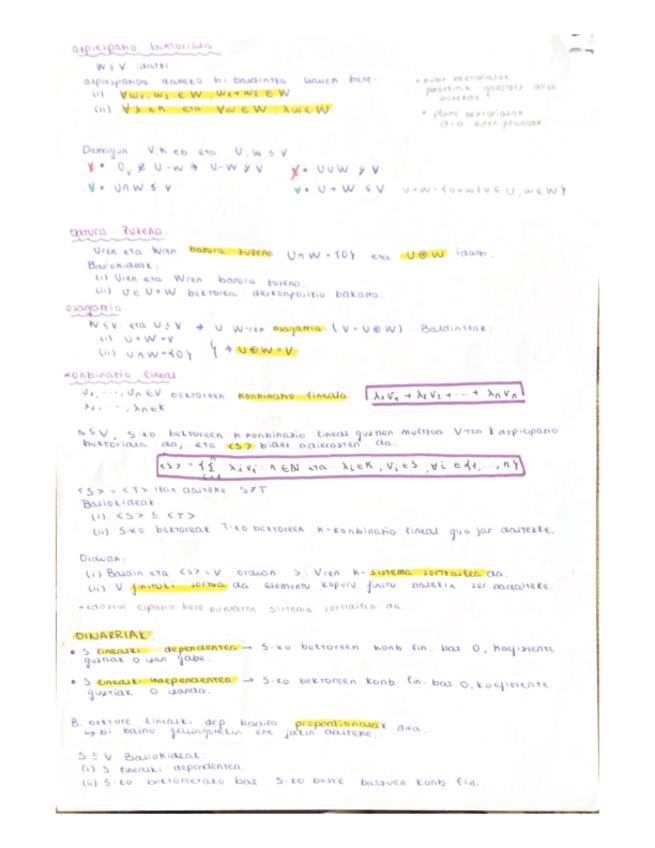 azpiespazio bektoriala
W ≤ V idatzi
azpiespazioa izateko bi baldintza hauek bete:
(i) ∀w₁, w₂ ∈ W, w₁ + w₂ ∈ W
(ii) ∀λ ∈ K eta ∀w ∈ W, λw ∈ W
* plano bektorialak
Demagun V, K eb eta U, W ≤ V
✗ • 0ᵥ ∉ U - W → U - W ≰ V
✗ • U ∪ W ≰ V
∀ • U ∩ W ≤ V
∀ • U + W ≤ V U + W = {u + w | u ∈ U, w ∈ W}
batura zuzena.
Uren eta Wren batura zuzena U ∩ W = {0} eta U ⊕ W idatzi.
Baliokideak:
(i) Uren eta Wren batura zuzena.
(ii) v ∈ U + W bektorea deskonposizio bakarra.
osagarria.
W ≤ V eta U ≤ V → U W-ren osagarria (V = U ⊕ W) Baldintzak:
(i) U + W = V
(ii) U ∩ W = {0} } → U ⊕ W = V
konbinazio lineal.
v₁, ..., vₙ ∈ V bektoreen konbinazio lineala λ₁v₁ + λ₂v₂ + ... + λₙvₙ
λ₁, ..., λₙ ∈ K
S ⊆ V, S-ko bektoreen K konbinazio lineal guztien multzoa V-ren K azpiespazio
bektoriala da, eta <S> bidez adierazten da.
<S> = {Σⁿᵢ₌₁ λᵢvᵢ : n ∈ N eta λᵢ ∈ K, vᵢ ∈ S, ∀i ∈ {1, ..., n}}
<S> = <T> izan daiteke S ≠ T
Baliokideak:
(i) <S> ⊆ <T>
(ii) S-ko bektoreak T-ko bektoreen K-konbinazio lineal gisa jar daitezke.
Orduan:
(i) Baldin eta <S> = V orduan S, Vren K-sistema sortzailea da.
(ii) V finituki sortua da elementu kopuru finitu batekin sor badaiteke.
* edozein espazio bere buruaren sistema sortzailea da.
OINARRIAK
• S linealki dependentea → S-ko bektoreen konb. lin. bat 0, koefiziente
guztiak 0 izan gabe.
• S linealki independentea → S-ko bektoreen konb. lin. bat 0, koefiziente
guztiak 0 izanda.
Bi bektore linealki dep badira proportzionalak dira.
↳ bi baino gehiagorekin ezin jakin daiteke.
S ⊆ V Baliokideak:
(i) S linealki dependentea.
(ii) S-ko bektoreetako bat S-ko beste batzuen konb. lin.